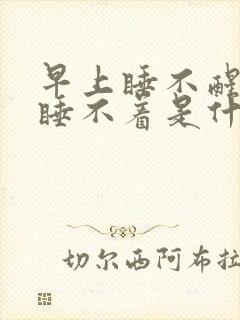 早上睡不醒
睡不着是什
切尔西阿布拉